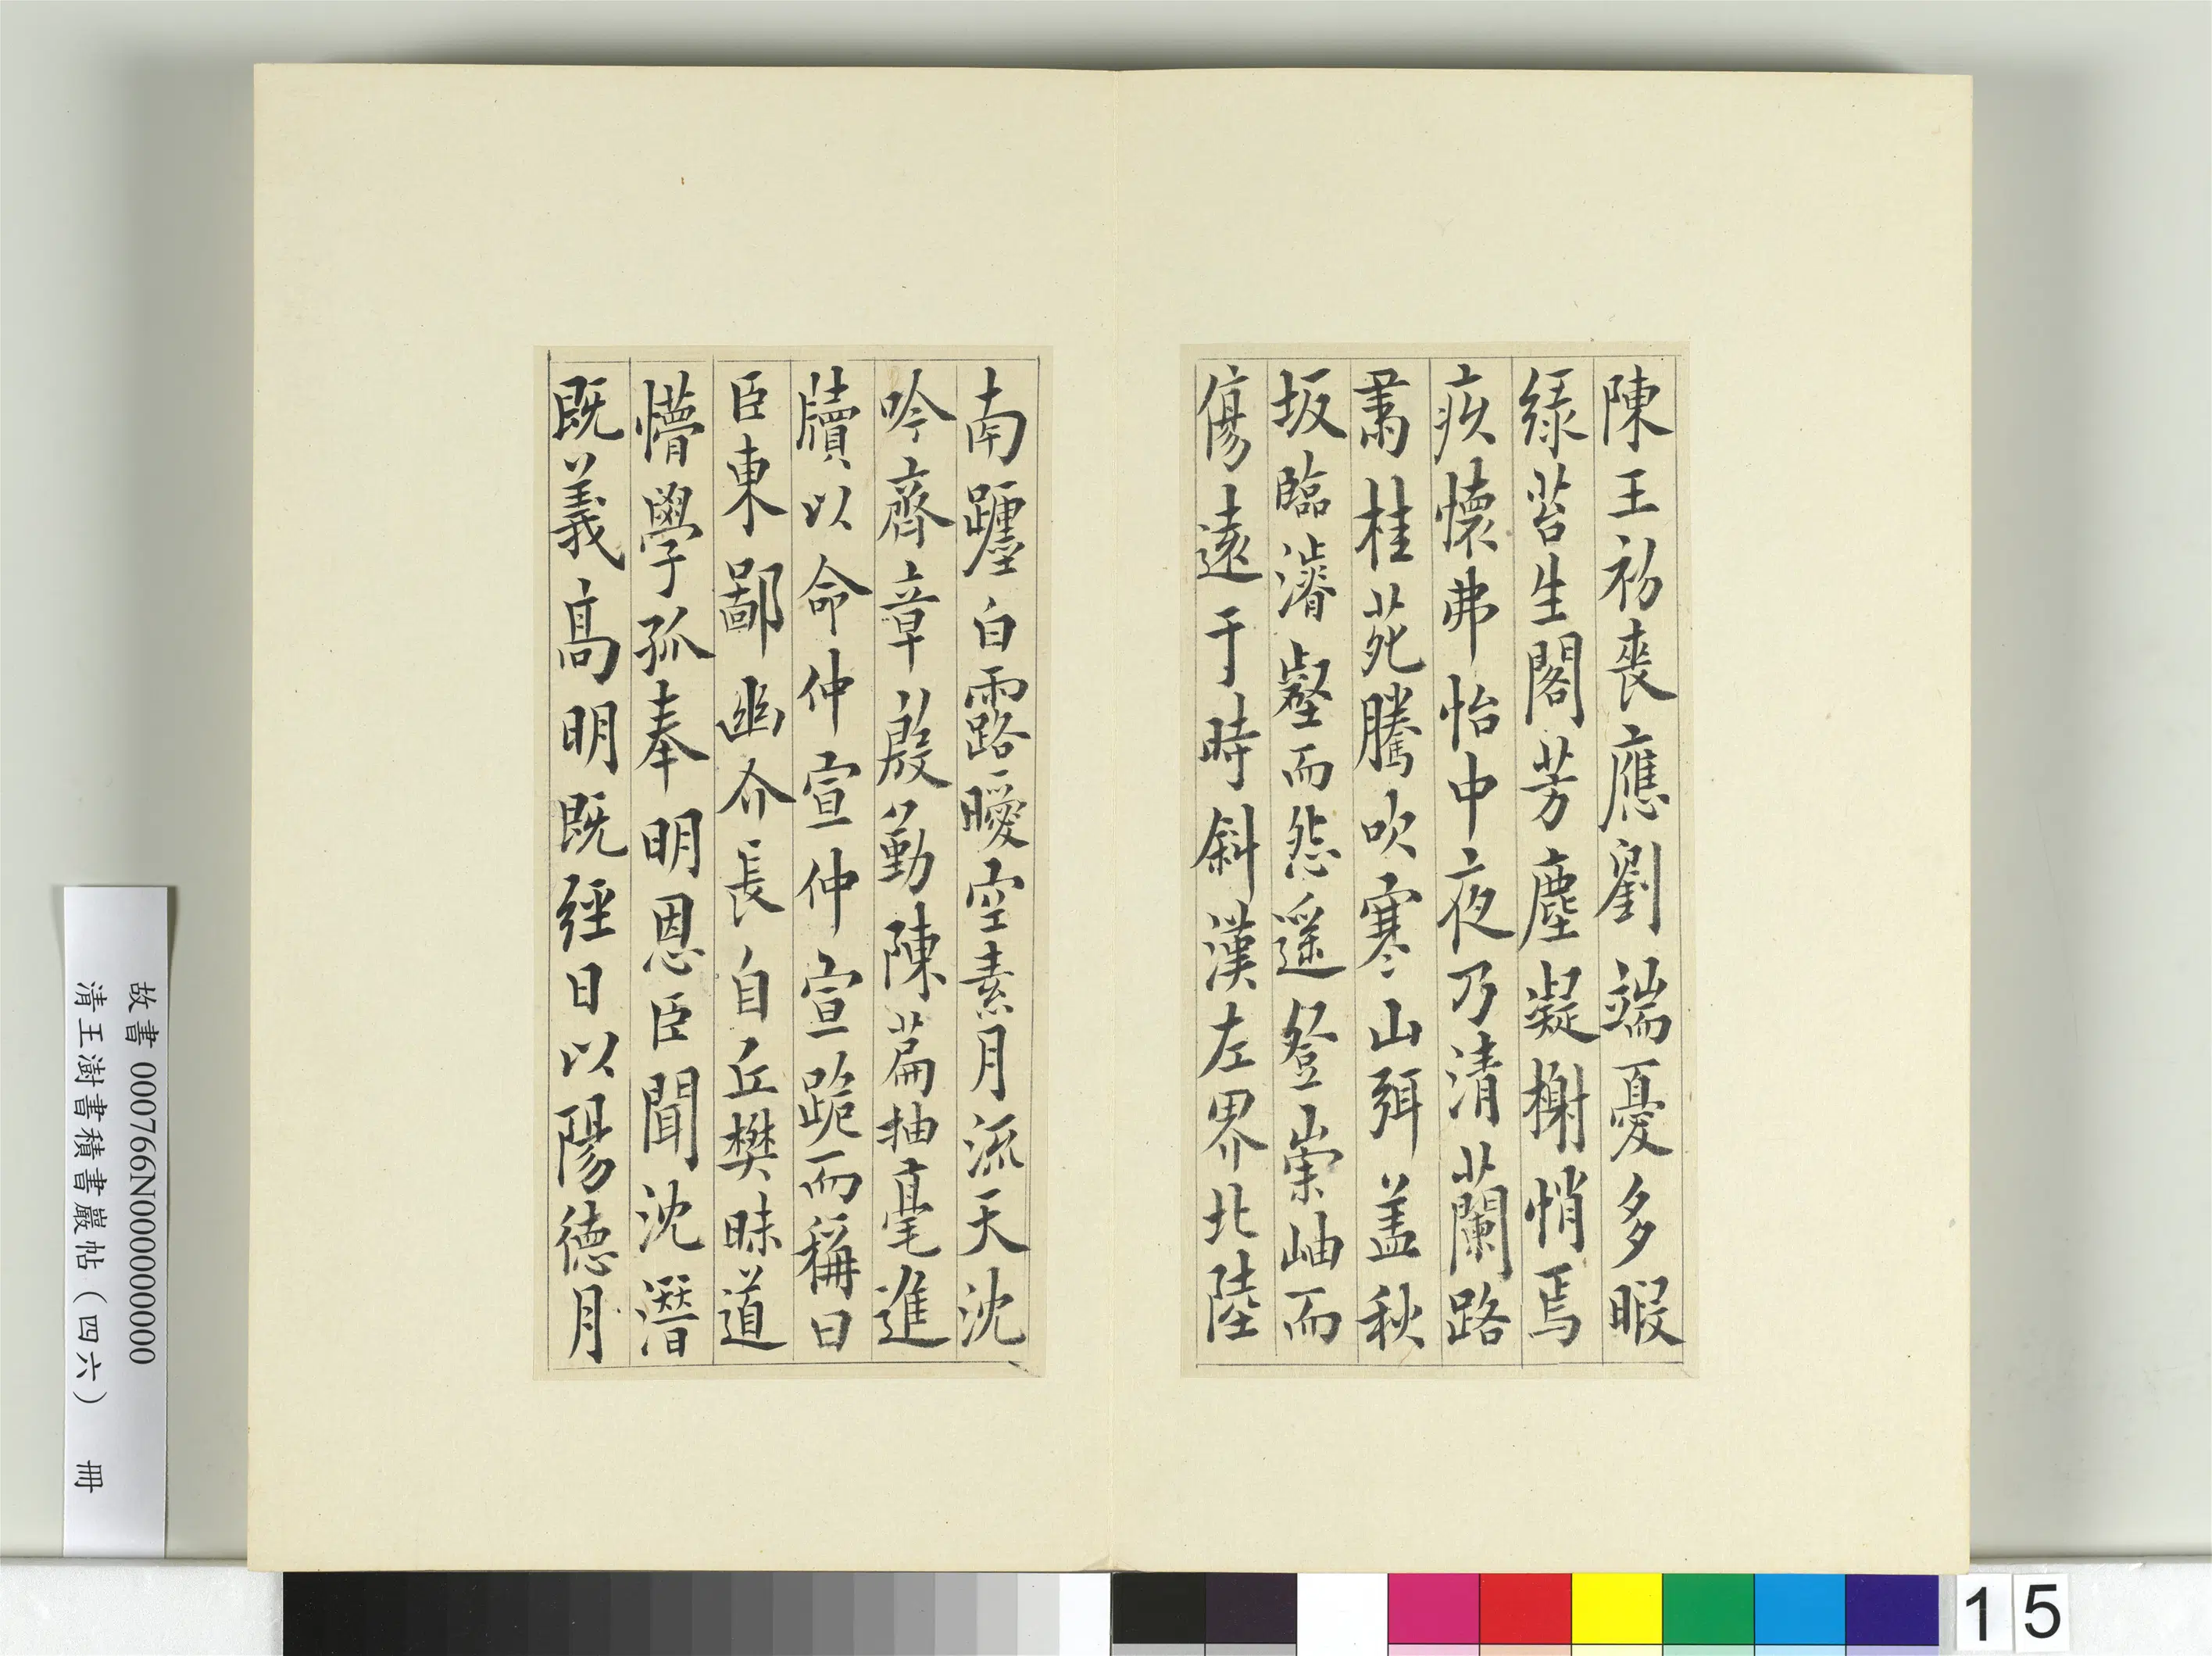 陳王初喪應劉端憂多暇
緑苔生閣芳塵凝榭悄焉
疚懷弗怡中夜乃清蘭路
肅桂苑騰吹寒山弭盖秋
坂臨濬壑而怨遥登崇岫而
傷遠于時斜漢左界北陸
南躔白露曖空素月流天沈
吟齊章殷勤陳篇抽毫進
牘以命仲宣仲宣跪而稱曰
臣東鄙幽介長自丘樊昧道
懵學孤奉明恩臣聞沈潛
既義高明既經日以陽德月
故書 000766N000000000
清王澍書積書巖帖（四六） 冊
15